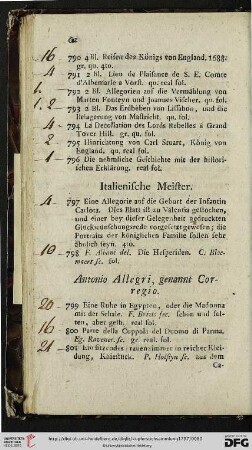 62
16 — 790 4 Bl. Reisen des Königs von England. 1688.
gr. qu. 4to.
4 — 791 2 Bl. Lieu de Plaisance de S. E. Comte
d'Albemarle a Vorst. qu. real fol.
792 2 Bl. Allegorien auf die Vermählung von
Marten Fonteyn und Joannes Visscher. qu. fol.
1. 2 — 793 2 Bl. Das Erdbeben von Lissabon, und
die Belagerung von Mastricht. qu. fol.
4 — 794 La Decollation des Lords Rebelles á Grand
Tower Hill. gr. qu. fol.
2 — 795 Hinrichtung von Carl Stuart, König von
England. qu. real fol.
1 — 796 Die nehmliche Geschichte mit der histori-
schen Erklärung. real fol.
Italienische Meister.
4 — 797 Eine Allegorie auf die Geburt der Infantin
Carlota. Dies Blatt ist zu Valensia gestochen,
und einer bey dieser Gelegenheit gedruckten
Glückwünschungsrede vorgesetzt gewesen; die
Portraits der Königlichen Familie sollen sehr
ähnlich seyn. 4to.
10 — 798 F. Albani del. Die Hesperiden. C. Bloe-
maert sc. fol.
Antonio Allegri, genannt Cor-
regio.
20 — 799 Eine Ruhe in Egypten, oder die Madonna
mit der Schale. F. Brizzi fec. schön und sel-
ten, aber gelb. real fol.
16 — 800 Parte della Cuppola del Duomo di Parma.
sc. gr. real fol.
21 — 801 Ein sitzendes Frauenzimmer in reicher Klei-
dung, Kniestück. P. Holsteyn sc. aus dem
Ca-
UNIVERSITÄTS-
BIBLIOTHEK
HEIDELBERG
DFG